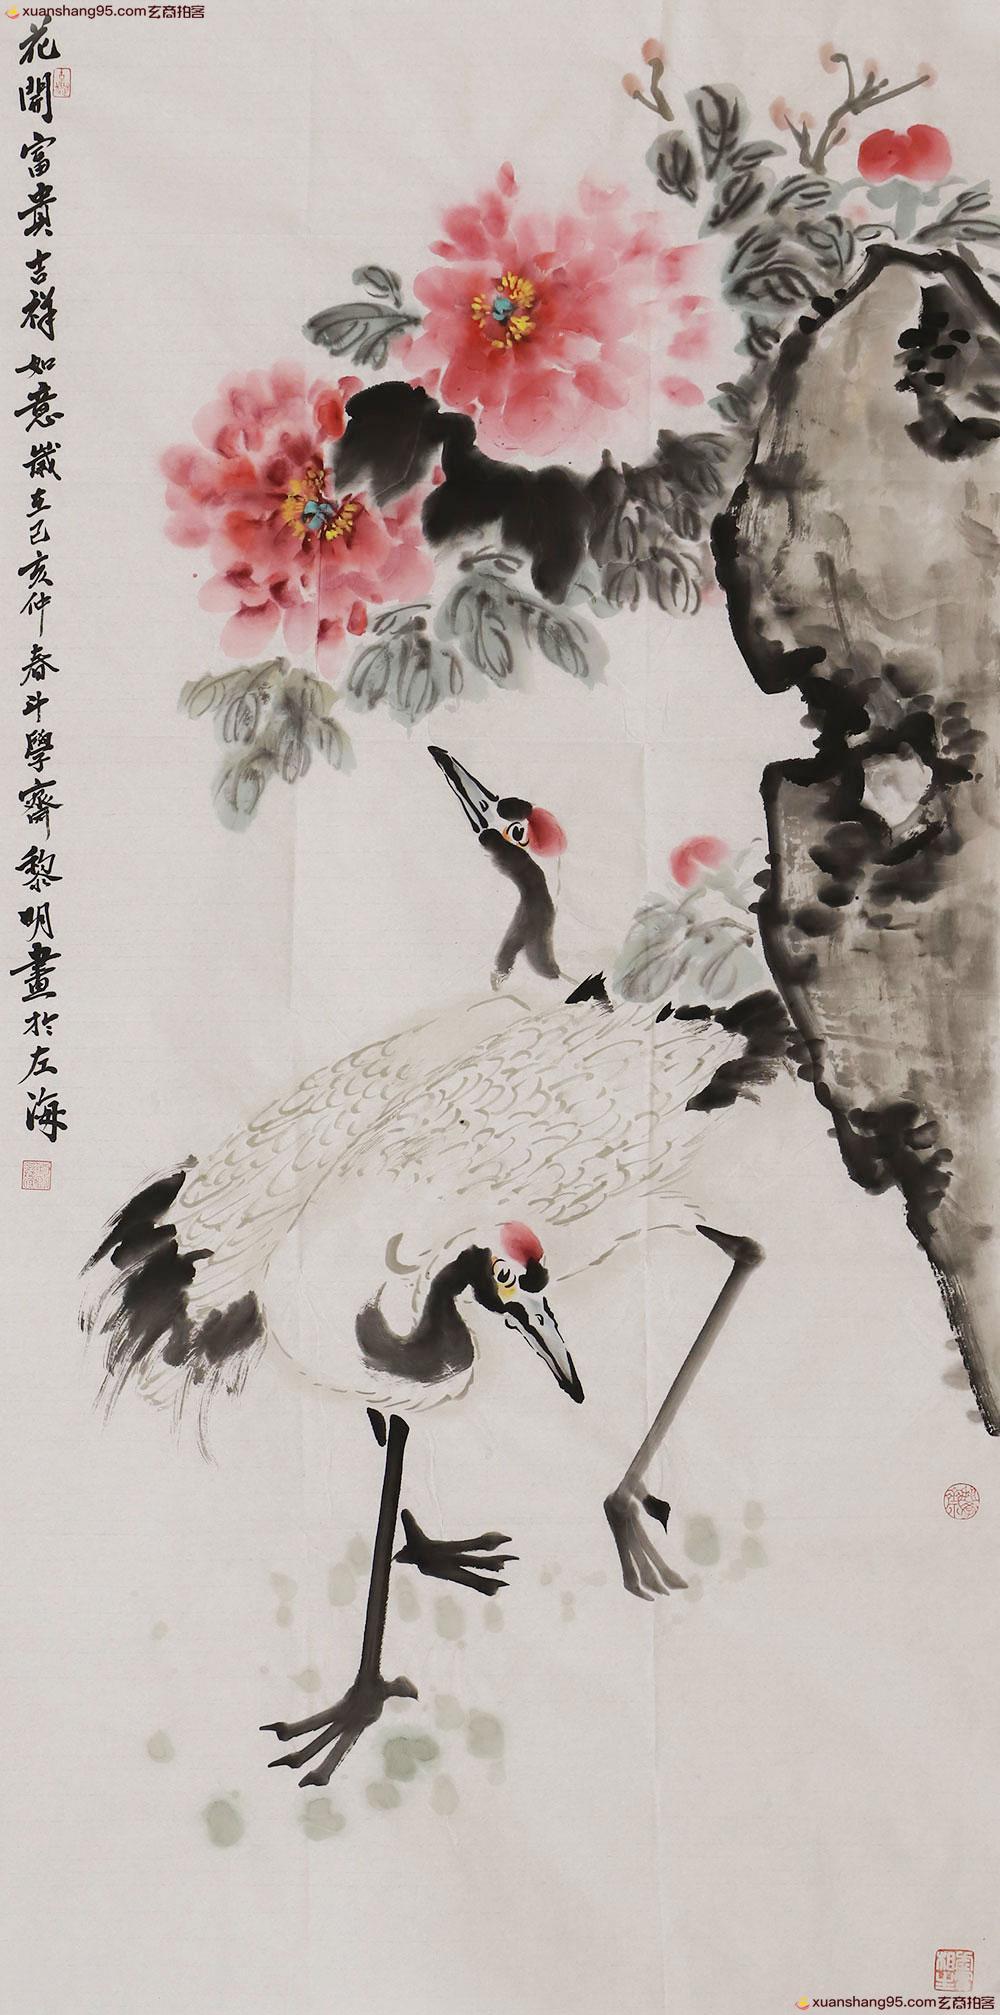 xuanshang95.com玄商拍客
花開富貴吉祥如意歲在己亥仲春斗學齋黎明畫於左海
xuanshang95.com玄商拍客